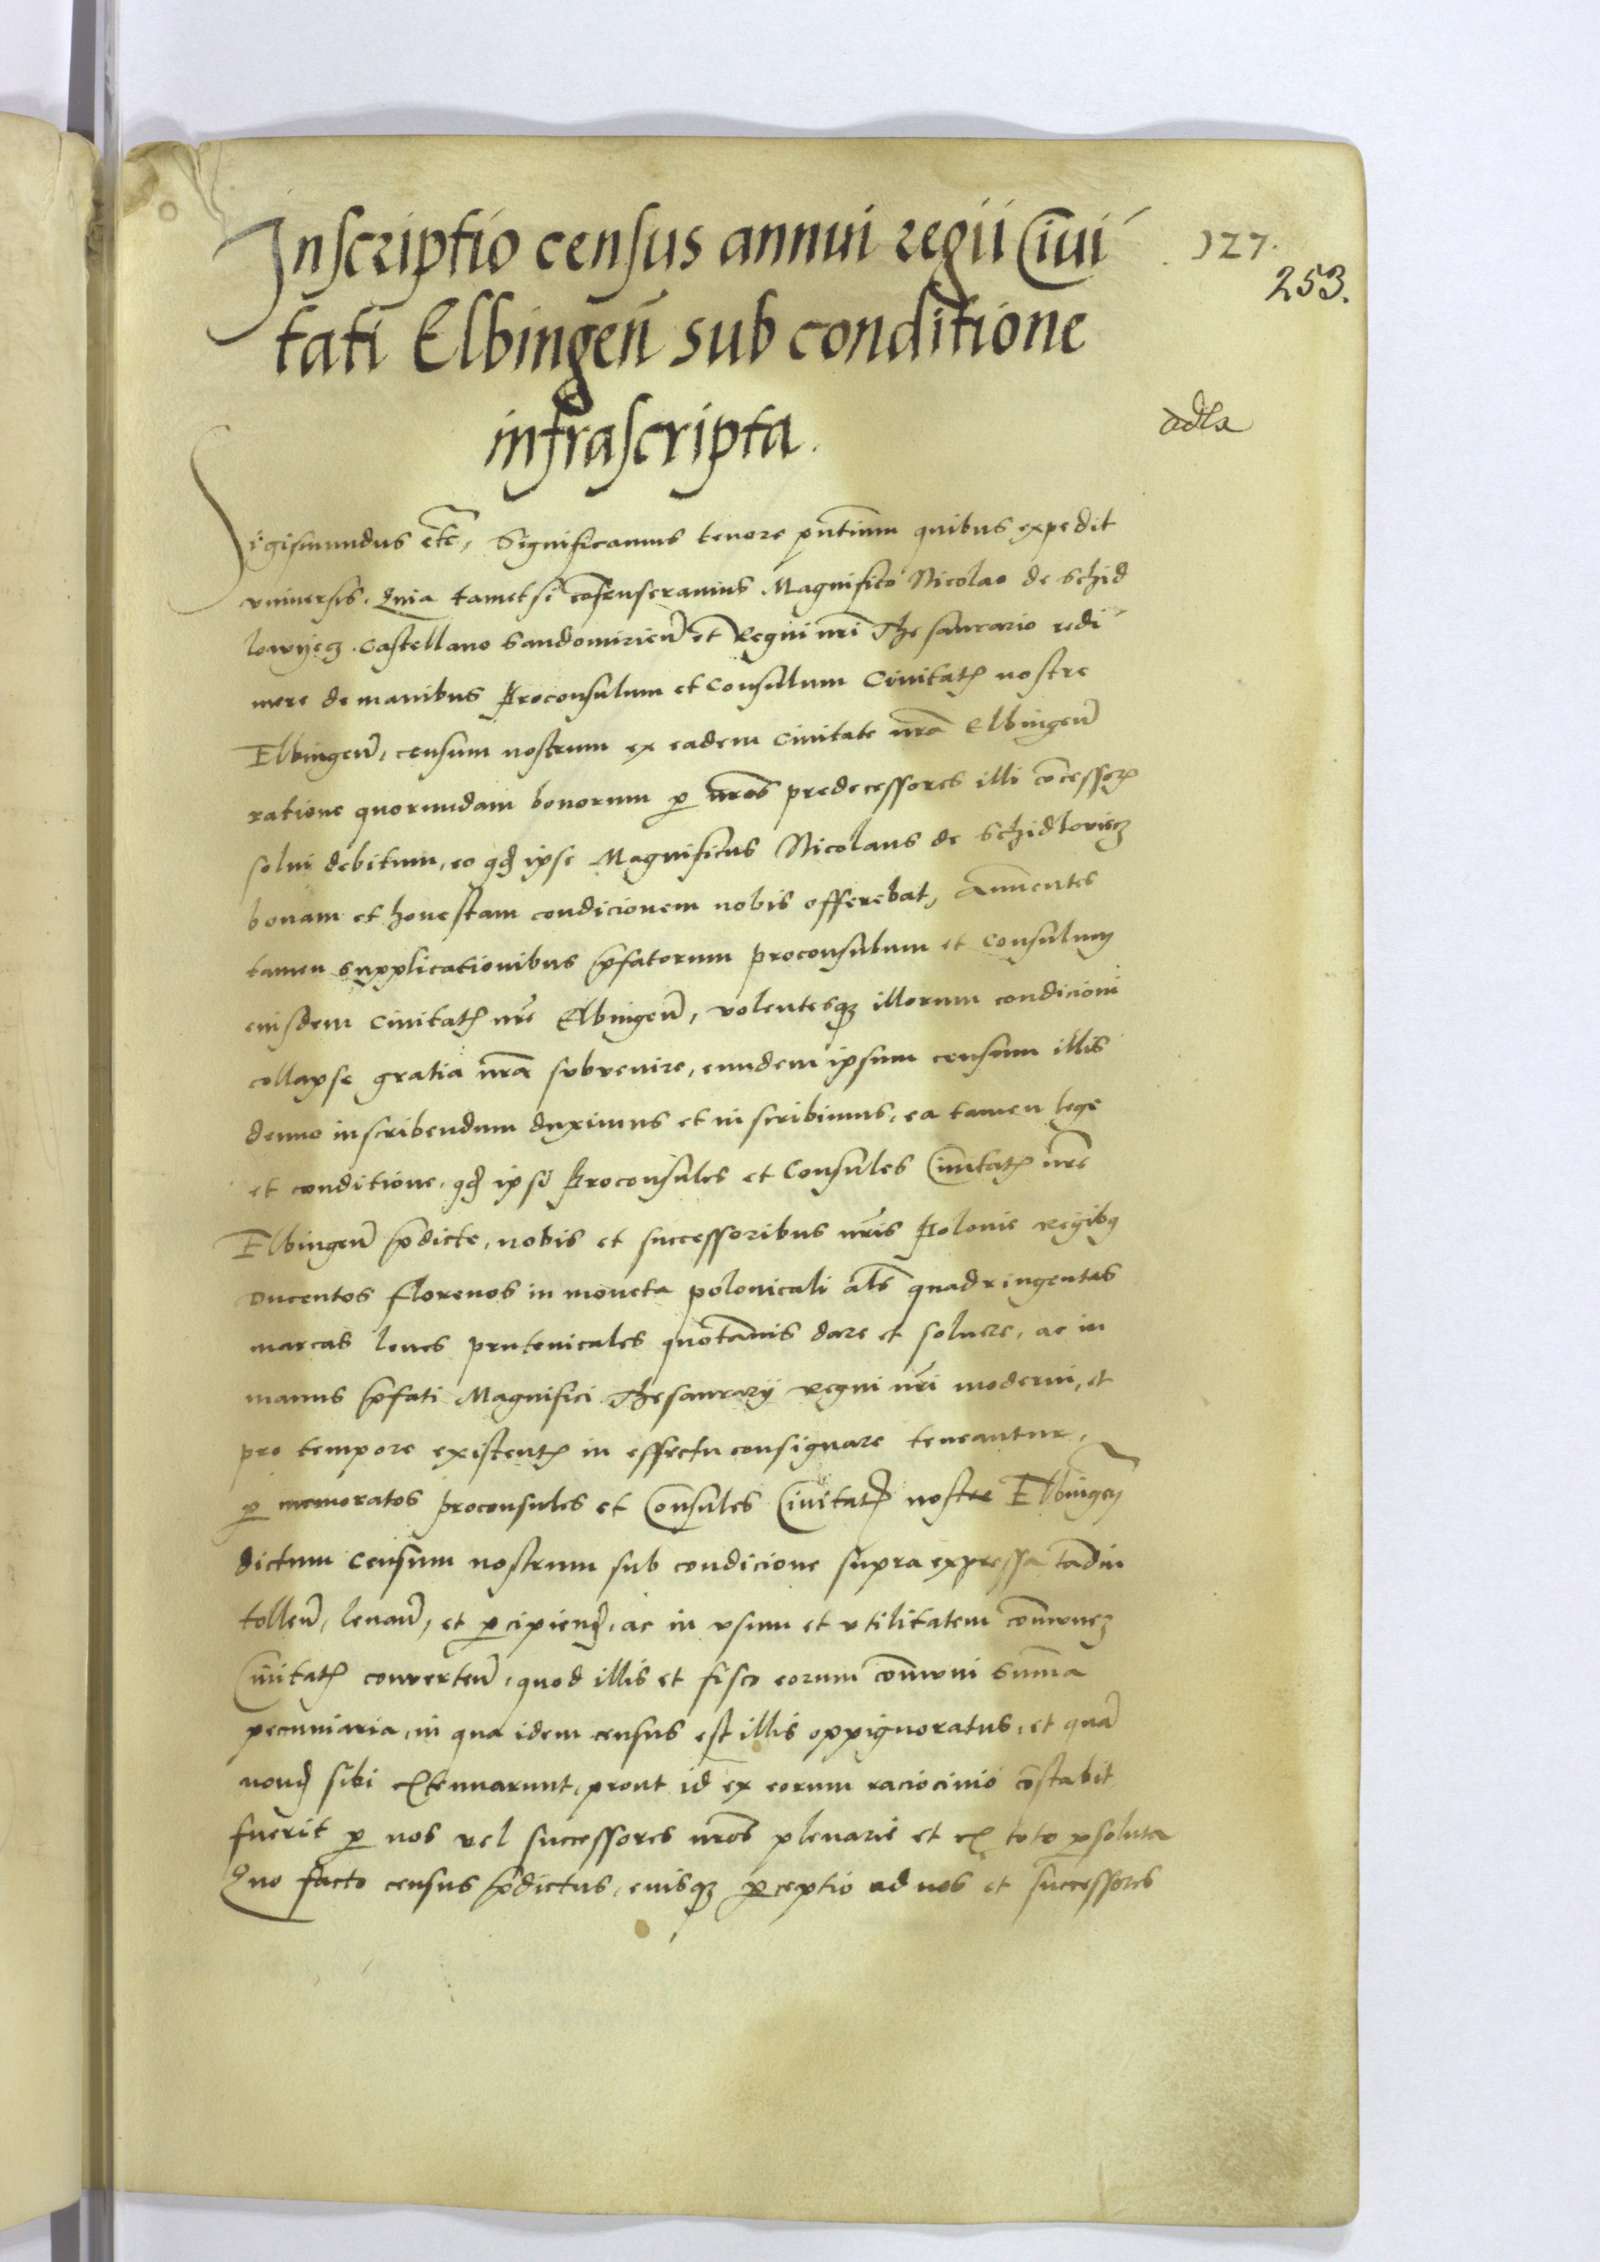 Inscriptio census annui regii Ciui
127.
253.
tati Elbingen̄ sub conditione
infrascripta.
Sigismundus etc̄, Significamus tenore pn̄tium quibus expedit
vniuersis. Quia tametsi cōsenseramus Magnifico Nicolao de Schid
lowyecz Castellano Sandomirien̄ et Regni nr̄i Thesaurario redi
mere de manibus Proconsulum et Consulum Ciuitatꝭ nostre
Elbingen̄, censum nostrum ex eadem Ciuitate nr̄a Elbingen̄
ratione quorundam bonorum ꝑ nr̄os predecessores illi cōcessorꝝ
solui debitum, eo qđ ipse Magnificus Nicolaus de Schidlouiecz
bonam et honestam condicionem nobis offerebat, Annuentes
tamen supplicationibus p̄fatorum proconsulum et Consulum
eiusdem Ciuitatꝭ nr̄e Elbingen̄, volentesqꝫ illorum condicioni
collapse gratia nr̄a subuenire, eundem ipsum censum illis
denuo inscribendum duximus et inscribimus, ea tamen lege
et conditione, qđ ipsi Proconsules et Consules Ciuitatꝭ nr̄e
Elbingen̄ p̄dicte, nobis et successoribus nr̄is Polonie Regibꝰ
Ducentos florenos in moneta polonicali al̄s quadringentas
marcas leues prutenicales quotannis dare et soluere, ac in
manus p̄fati Magnifici Thesaurarij Regni nr̄i moderni, et
pro tempore existentꝭ in effectu consignare teneantur,
ꝑ memoratos proconsules et Consules Ciuitatꝭ nostre Elbingen̄
dictum Censum nostrum sub condicione supra expressa tādiu
tollen̄, leuan̄, et ꝑcipienđ, ac in vsum et vtilitatem cōmunem
Ciuitatꝭ conuerten̄, quod illis et fisco eorum cōmuni summa
pecuniaria, in qua idem census est illis oppignoratus, et quā
nonđ sibi extenuarunt, prout id ex eorum raciocinio cōstabit
fuerit ꝑ nos vel successores nr̄os plenarie et ex toto ꝑsoluta
Quo facto census p̄dictus, eiusqꝫ ꝑceptio ad nos et successores